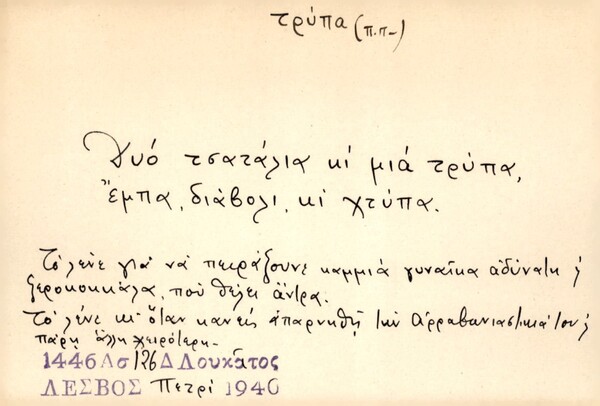 τρύπα (π.π-)
Δυό τσατάλια κί μιά τρύπα,
Ἔμπα, διάβολι, κί χτύπα.
Τό λένε γιά νά πειράξουνε καμμιά γυναῖκα ἀδύνατη ἤ
ξεροκοκκάλα, πού θέλει ἄντρα.
Τό λένε κι' ὅταν κανείς ἀπαρνηθῇ τήν ἀρραβωνιαστικιά του
πάρῃ ἄλλη χειρότερη.-
1446 Ασ 126 Δ Λουκάτος
ΛΕΣΒΟΣ Πετρί 1940